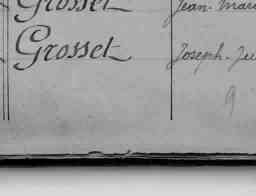 Grosset Jean-Marie
Grosset Joseph-
9